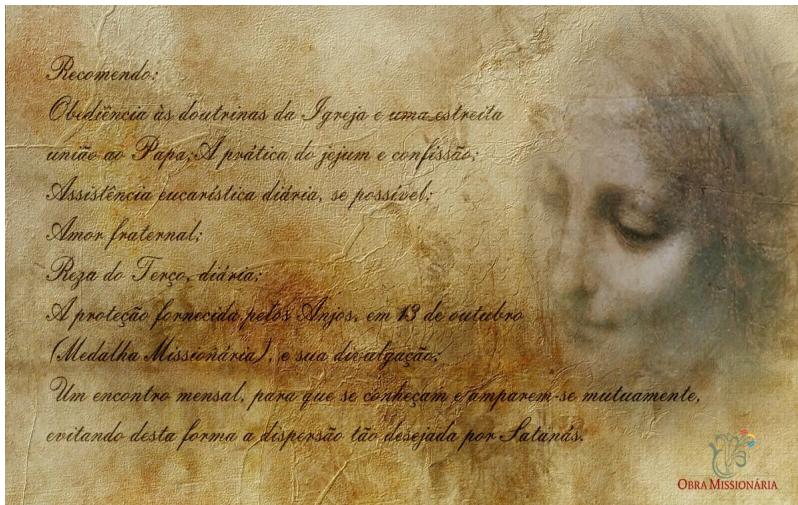 Recomendo:
Obediência às doutrinas da Igreja e uma estreita
união ao Papa;A prática do jejum e confissão;
Assistência eucarística diária, se possível;
Amor fraternal;
Reza do Terço, diária;
A proteção fornecida pelos Anjos, em 13 de outubro
(Medalha Missionária), e sua divulgação;
Um encontro mensal, para que se conheçam e amparem-se mutuamente,
evitando desta forma a dispersão tão desejada por Satanás.
OBRA MISSIONÁRIA